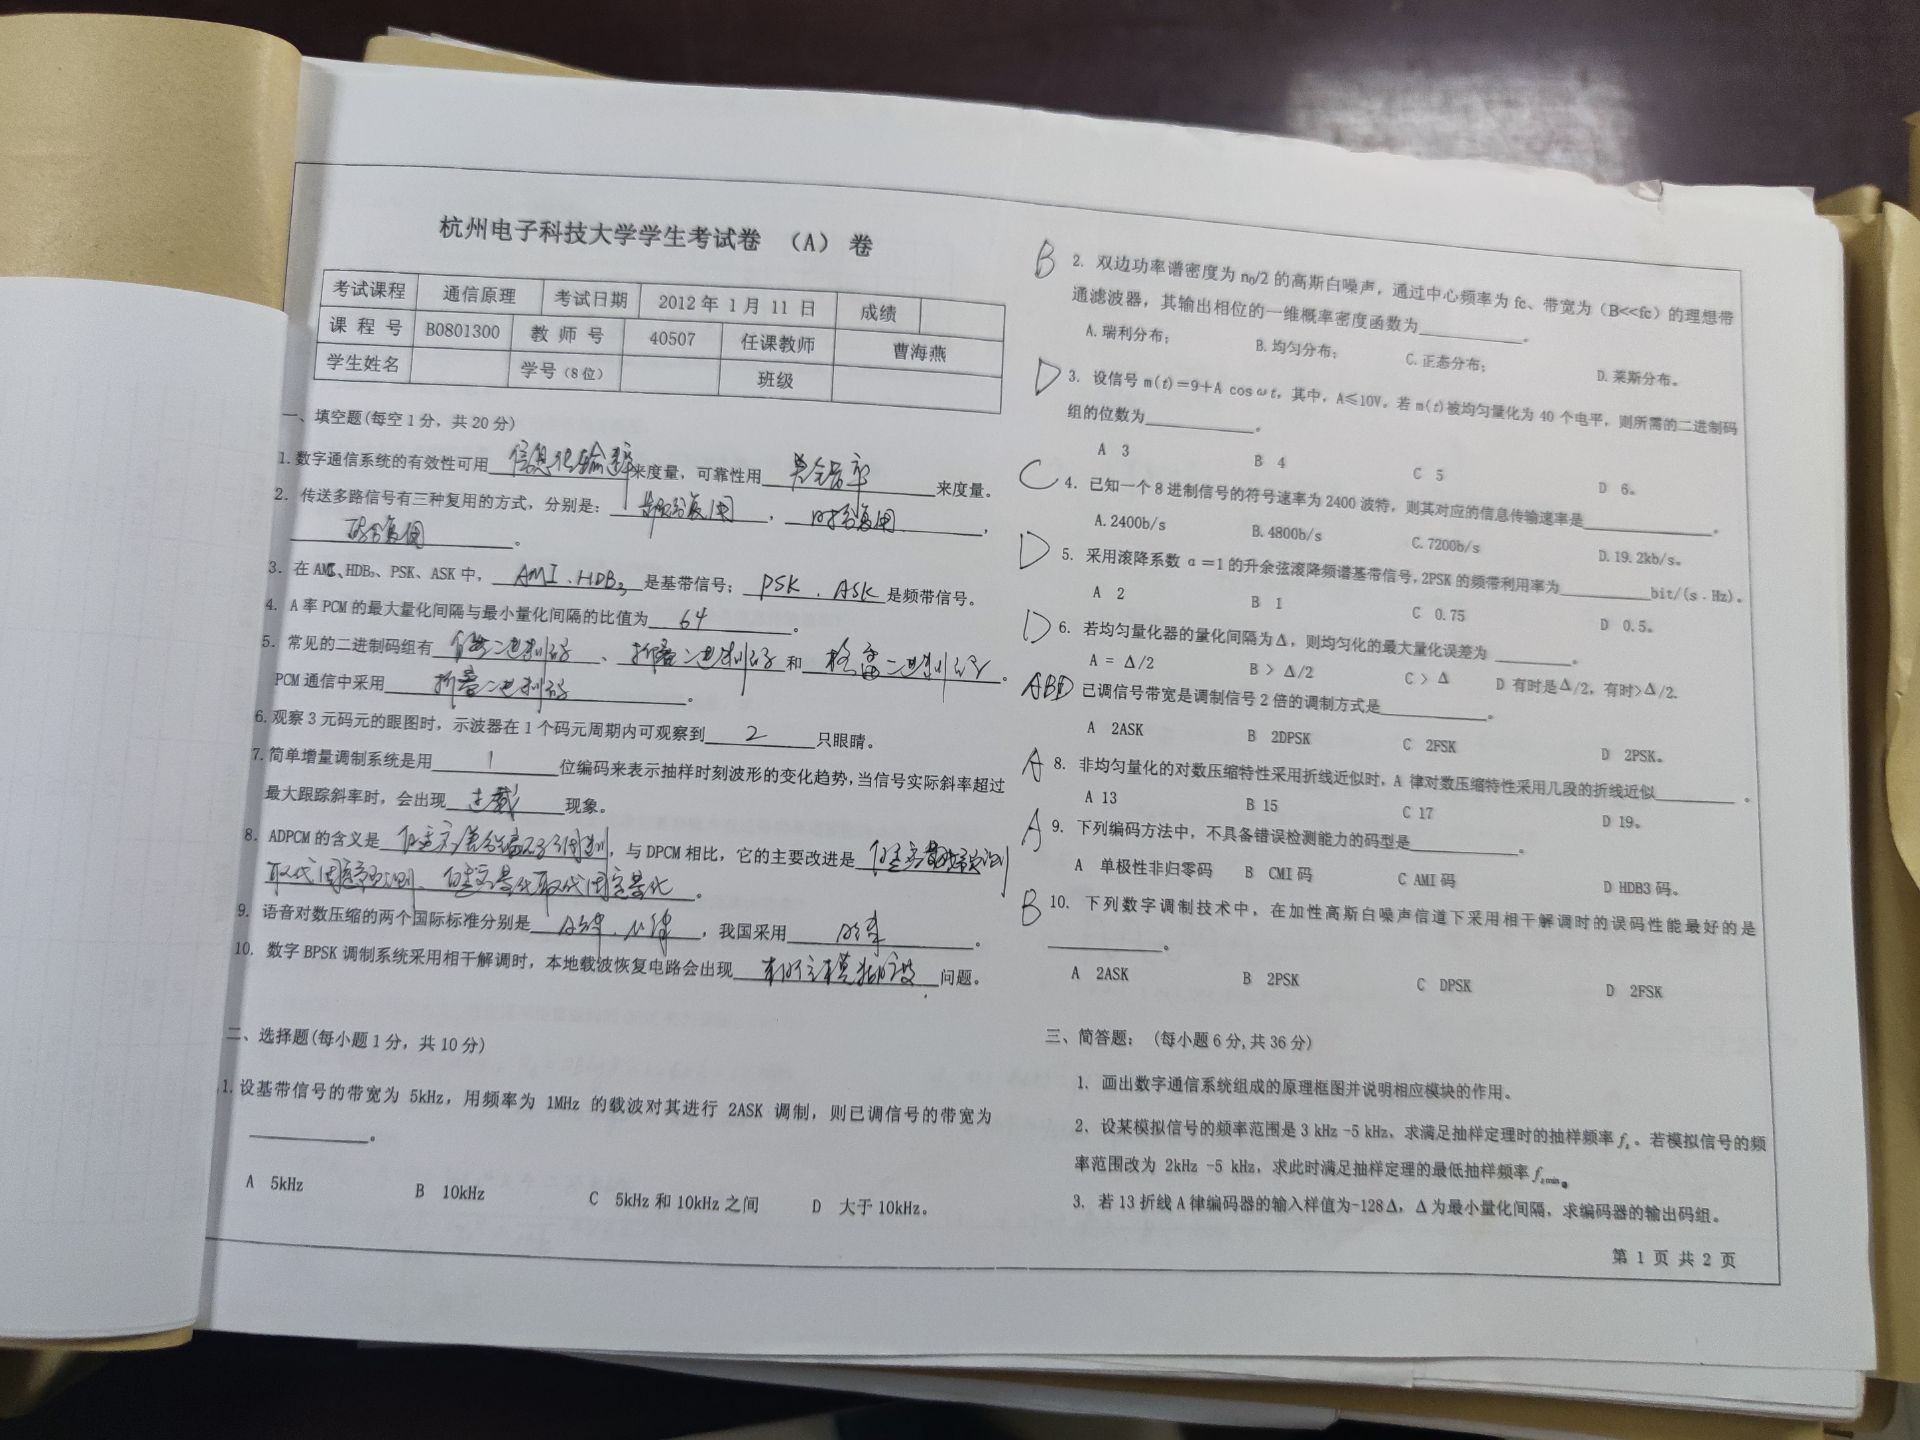 杭州电子科技大学学生考试卷 （A） 卷
考试课程 通信原理 考试日期 2012 年 1 月 11 日 成绩
课 程 号 B0801300 教 师 号 40507 任课教师 曹海燕
学生姓名 学号（8位） 班级
一、填空题(每空1分，共20分)
1.数字通信系统的有效性可用 信息传输速率 来度量，可靠性用 差错率 来度量。
2. 传送多路信号有三种复用的方式，分别是： 频分复用 ， 时分复用 ，
码分复用 。
3. 在AMI、HDB₃、PSK、ASK中， AMI、HDB₃ 是基带信号； PSK、ASK 是频带信号。
4. A 率PCM的最大量化间隔与最小量化间隔的比值为 64 。
5. 常见的二进制码组有 自然二进制码 、 折叠二进制码 和 格雷二进制码 。
PCM通信中采用 折叠二进制码 。
6. 观察3元码元的眼图时，示波器在1个码元周期内可观察到 2 只眼睛。
7. 简单增量调制系统是用 1 位编码来表示抽样时刻波形的变化趋势,当信号实际斜率超过
最大跟踪斜率时，会出现 过载 现象。
8. ADPCM的含义是 自适应差分编码调制 ，与DPCM相比，它的主要改进是 自适应预测
取代固定预测、自适应量化取代固定量化 。
9. 语音对数压缩的两个国际标准分别是 A律、μ律 ，我国采用 A律 。
10. 数字BPSK调制系统采用相干解调时，本地载波恢复电路会出现 相位模糊 问题。
二、选择题(每小题1分，共10分)
1. 设基带信号的带宽为 5kHz，用频率为 1MHz 的载波对其进行 2ASK 调制，则已调信号的带宽为
。
A 5kHz B 10kHz C 5kHz和10kHz之间 D 大于10kHz。
B 2. 双边功率谱密度为 n₀/2 的高斯白噪声，通过中心频率为 fc、带宽为（B<<fc）的理想带
通滤波器，其输出相位的一维概率密度函数为 。
A.瑞利分布； B.均匀分布； C.正态分布； D.莱斯分布。
D 3. 设信号 m(t)=9+A cosωt，其中，A≤10V。若 m(t)被均匀量化为 40 个电平，则所需的二进制码
组的位数为 。
A 3 B 4 C 5 D 6。
C 4. 已知一个8进制信号的符号速率为2400波特，则其对应的信息传输速率是 。
A.2400b/s B.4800b/s C.7200b/s D.19.2kb/s。
D 5. 采用滚降系数 α=1的升余弦滚降频谱基带信号,2PSK的频带利用率为 bit/(s·Hz)。
A 2 B 1 C 0.75 D 0.5。
D 6. 若均匀量化器的量化间隔为Δ，则均匀化的最大量化误差为 。
A = Δ/2 B > Δ/2 C > Δ D 有时是Δ/2，有时>Δ/2.
ABD 已调信号带宽是调制信号2倍的调制方式是 。
A 2ASK B 2DPSK C 2FSK D 2PSK。
A 8. 非均匀量化的对数压缩特性采用折线近似时，A 律对数压缩特性采用几段的折线近似 。
A 13 B 15 C 17 D 19。
A 9. 下列编码方法中，不具备错误检测能力的码型是 。
A 单极性非归零码 B CMI码 C AMI码 D HDB3码。
B 10. 下列数字调制技术中，在加性高斯白噪声信道下采用相干解调时的误码性能最好的是
。
A 2ASK B 2PSK C DPSK D 2FSK
三、简答题： (每小题6分,共36分)
1. 画出数字通信系统组成的原理框图并说明相应模块的作用。
2. 设某模拟信号的频率范围是3 kHz -5 kHz，求满足抽样定理时的抽样频率 fₛ。若模拟信号的频
率范围改为 2kHz -5 kHz，求此时满足抽样定理的最低抽样频率 fₛmin。
3. 若13折线A律编码器的输入样值为-128Δ，Δ为最小量化间隔，求编码器的输出码组。
第 1 页 共 2 页